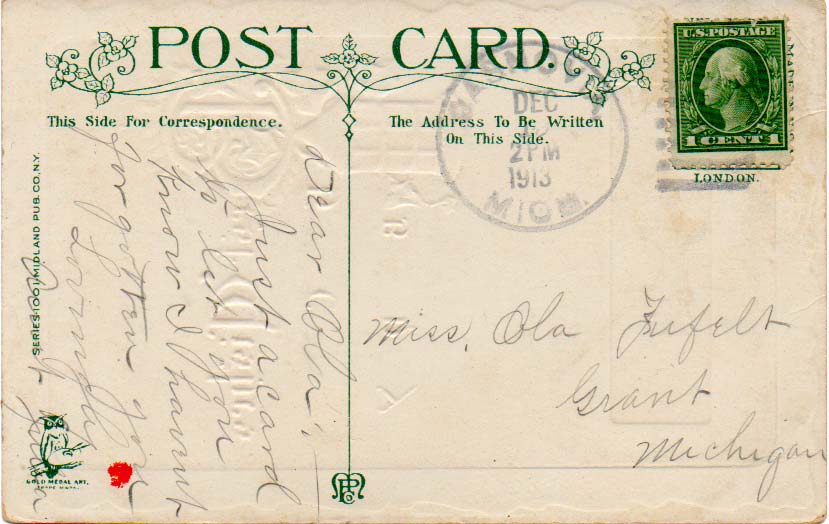 POST CARD.
This Side For Correspondence.
The Address To Be Written
On This Side.
DEC
2PM
1913
MICH.
U.S. POSTAGE
1 CENT 1
LONDON.
SERIES 1001 MIDLAND PUB. CO. N.Y.
GOLD MEDAL ART,
TRADE MARK.
Dear Ola;
Just a card
to let you
know I havent
forgotten you
Miss, Ola Fufelt
Grant
Michigan